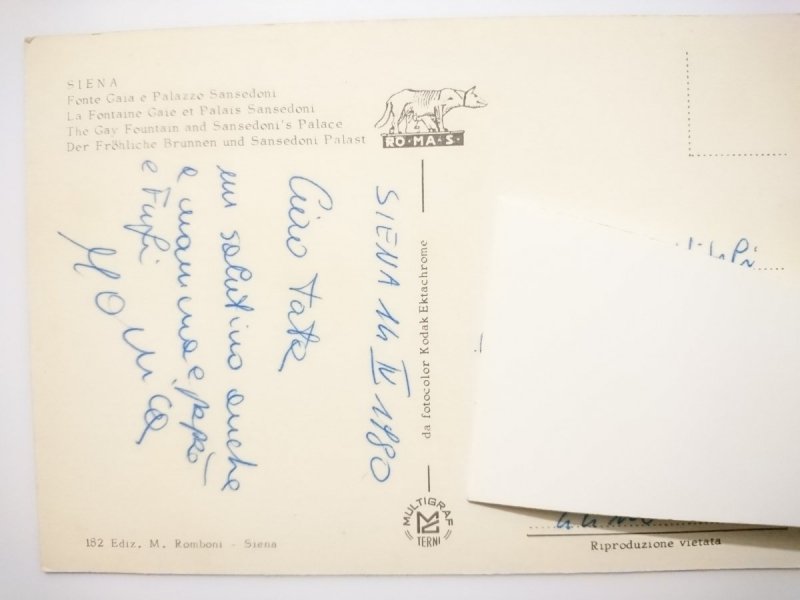 SIENA
Fonte Gaia e Palazzo Sansedoni
La Fontaine Gaie et Palais Sansedoni
The Gay Fountain and Sansedoni's Palace
Der Fröhliche Brunnen und Sansedoni Palast
RO·MA·S·
SIENA 14 IV 1980
un salutino anche
a mamma e papà
e
da fotocolor Kodak Ektachrome
MULTIGRAF
TERNI
182 Ediz. M. Romboni - Siena
Riproduzione vietata